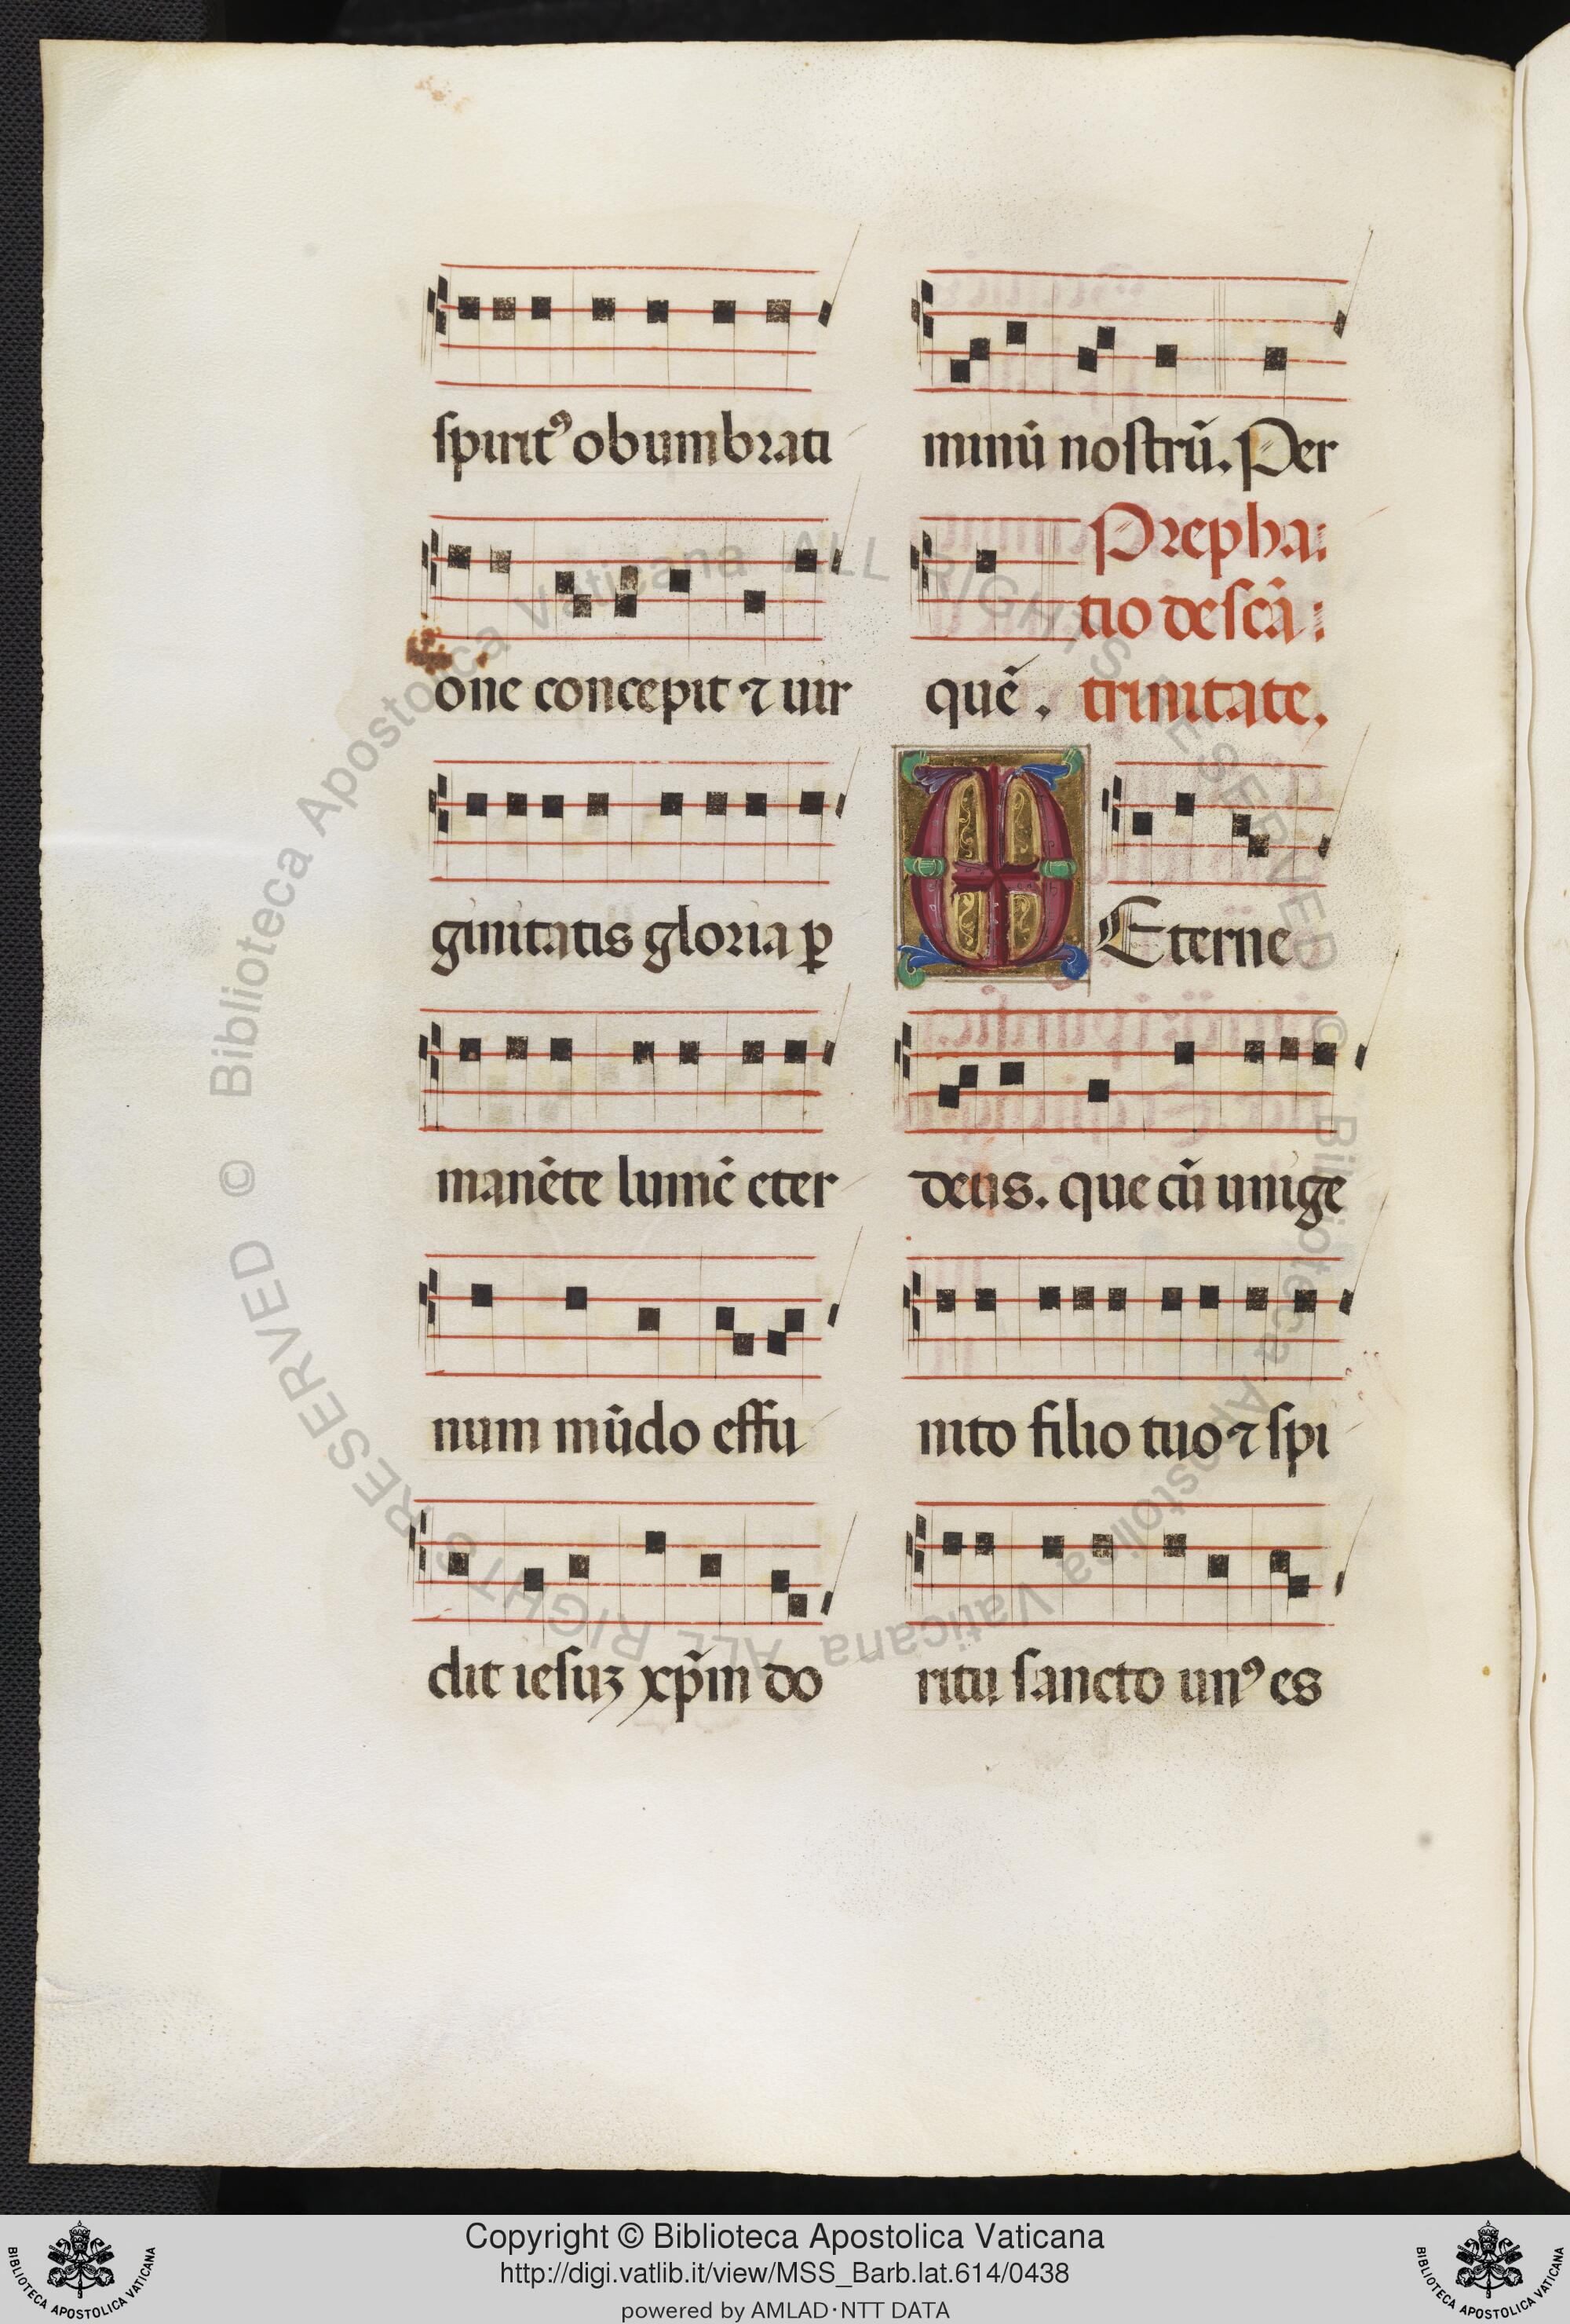 spirit⁹ obumbrati
one concepit ⁊ uir
ginitatis gloria ꝑ
manēte lumē eter
num mūdo effu
dit iesuꝫ xp̄m do
minū nostrū. Per
Prepha:
tio de scā:
quē. trinitate.
Eterne
deus. que cū unige
nito filio tuo ⁊ spi
ritu sancto un⁹ es
Biblioteca Apostolica Vaticana ALL RIGHTS RESERVED ©
Biblioteca Apostolica Vaticana ALL RIGHTS RESERVED ©
Copyright © Biblioteca Apostolica Vaticana
http://digi.vatlib.it/view/MSS_Barb.lat.614/0438
powered by AMLAD·NTT DATA
BIBLIOTECA APOSTOLICA VATICANA
BIBLIOTECA APOSTOLICA VATICANA